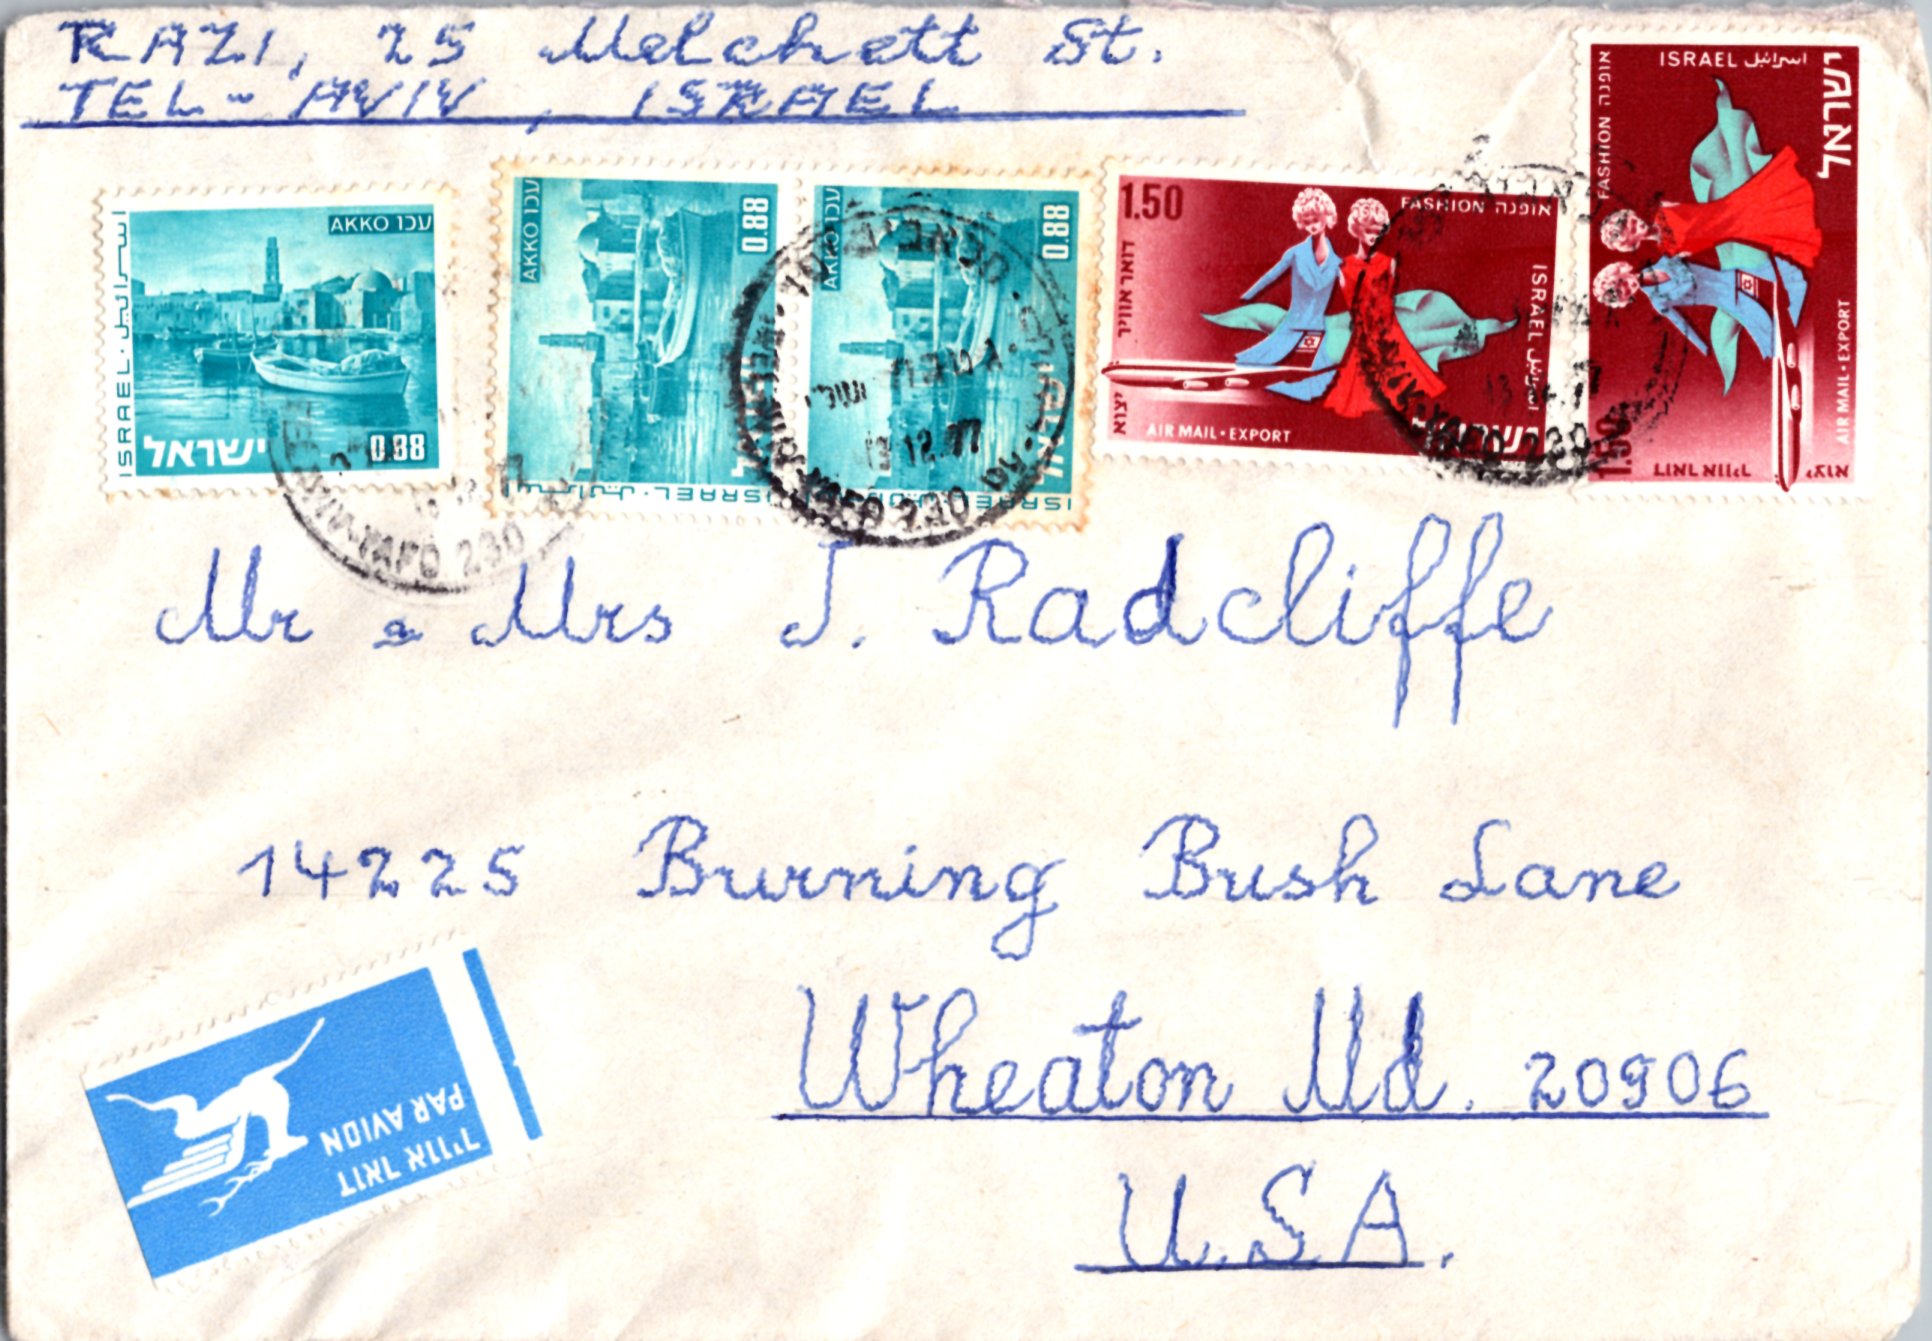 RAZI, 25 Melchett St.
TEL-AVIV, ISRAEL
עכו AKKO
ISRAEL · اسرائيل
ישראל
0.88
עכו AKKO
0.88
ISRAEL · اسرائيل
עכו AKKO
0.88
ISRAEL
1.50
FASHION אופנה
דואר אוויר
יצוא
ISRAEL اسرائيل
AIR MAIL · EXPORT
ישראל
ISRAEL اسرائيل
ישראל
FASHION אופנה
AIR MAIL · EXPORT
1.50
דואר אוויר
יצוא
TEL AVIV-YAFO 230
13.12.77
תל אביב-יפו
TEL AVIV-YAFO 230
AVIV-YAFO 230
Mr & Mrs J. Radcliffe
14225 Burning Bush Lane
Wheaton Md. 20906
U.S.A.
דואר אוויר
PAR AVION